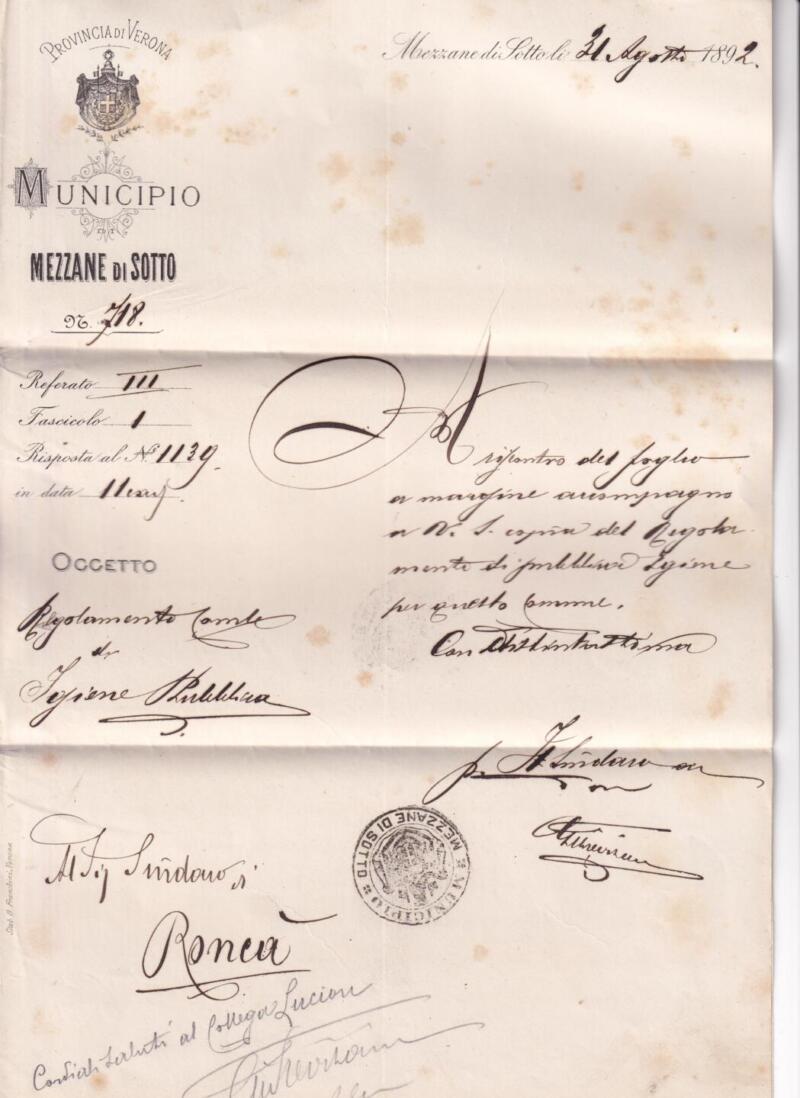 PROVINCIA DI VERONA
MUNICIPIO
DI
MEZZANE DI SOTTO
N. 718.
Mezzane di Sotto li 21 Agosto 1892.
Referato III
Fascicolo 1
Risposta al N.° 1139
in data 11
OGGETTO
Regolamento Comle
di
Igiene Pubblica
A riscontro del foglio
a margine accompagno
a V. S. copia del Regola-
mento di pubblica Igiene
per questo Comune.
Con distintissima
p. Il Sindaco
MUNICIPIO MEZZANE DI SOTTO
Al Sig Sindaco di
Roncà
Cordiali saluti al Collega
Stab. G. Franchini, Verona